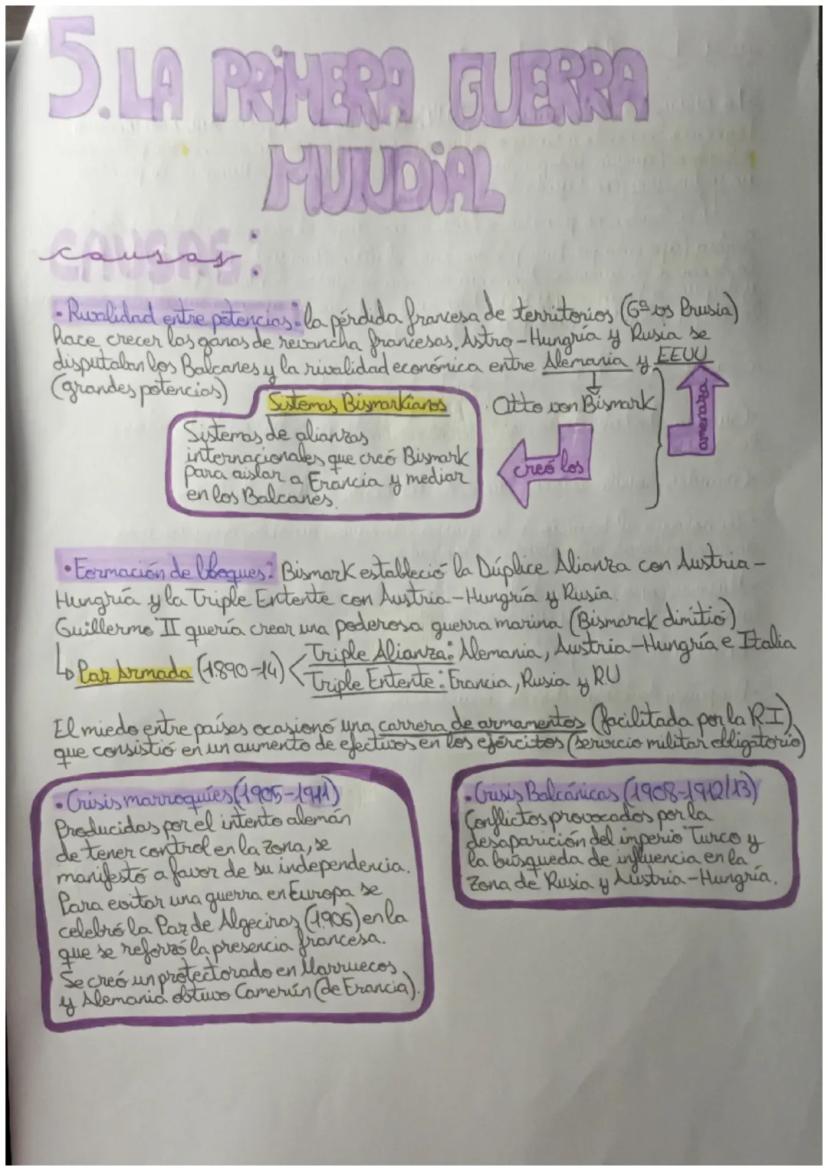 5. LA PRIMERA GUERRA
MUNDIAL
causas:
• Rivalidad entre potencias: la pérdida francesa de territorios (Gª vs Prusia)
hace crecer las ganas de revancha francesas. Astro-Hungría y Rusia se
disputaban los Balcanes y la rivalidad económica entre Alemania y EEUU
(grandes potencias)
Otto von Bismark
amenaza
creó los
Sistemas Bismarkianos
Sistemas de alianzas
internacionales que creó Bismark
para aislar a Francia y mediar
en los Balcanes.
• Formación de bloques: Bismark estableció la Dúplice Alianza con Austria-
Hungría y la Triple Entente con Austria-Hungría y Rusia.
Guillermo II quería crear una poderosa guerra marina (Bismarck dimitió)
↳ Paz Armada (1890-14) < Triple Alianza: Alemania, Austria-Hungría e Italia
Triple Entente: Francia, Rusia y RU
El miedo entre países ocasionó una carrera de armamentos (facilitada por la RI)
que consistió en un aumento de efectivos en los ejércitos (servicio militar obligatorio)
• Crisis marroquíes (1905-1911)
Producidas por el intento alemán
de tener control en la zona, se
manifestó a favor de su independencia.
Para evitar una guerra en Europa se
celebró la Paz de Algeciras (1906) en la
que se reforzó la presencia francesa.
Se creó un protectorado en Marruecos
y Alemania obtuvo Camerún (de Francia).
• Crisis Balcánicas (1908-1912/13)
Conflictos provocados por la
desaparición del imperio Turco y
la búsqueda de influencia en la
zona de Rusia y Austria-Hungría.